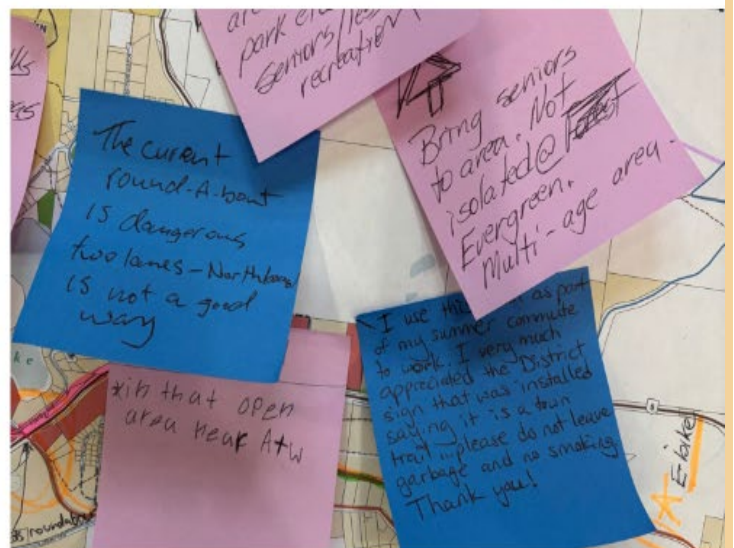 park
seniors/less
recreation
Bring seniors
to area. Not
isolated @
Evergreen.
Multi-age area.
The current
round-A-bout
is dangerous
two lanes - Northbound
is not a good
way
I use this as part
of my summer commute
to work. I very much
appreciated the District
sign that was installed
saying it is a town
trail... please do not leave
garbage and no smoking
Thank you!
*in that open
area near A+W
E-bike